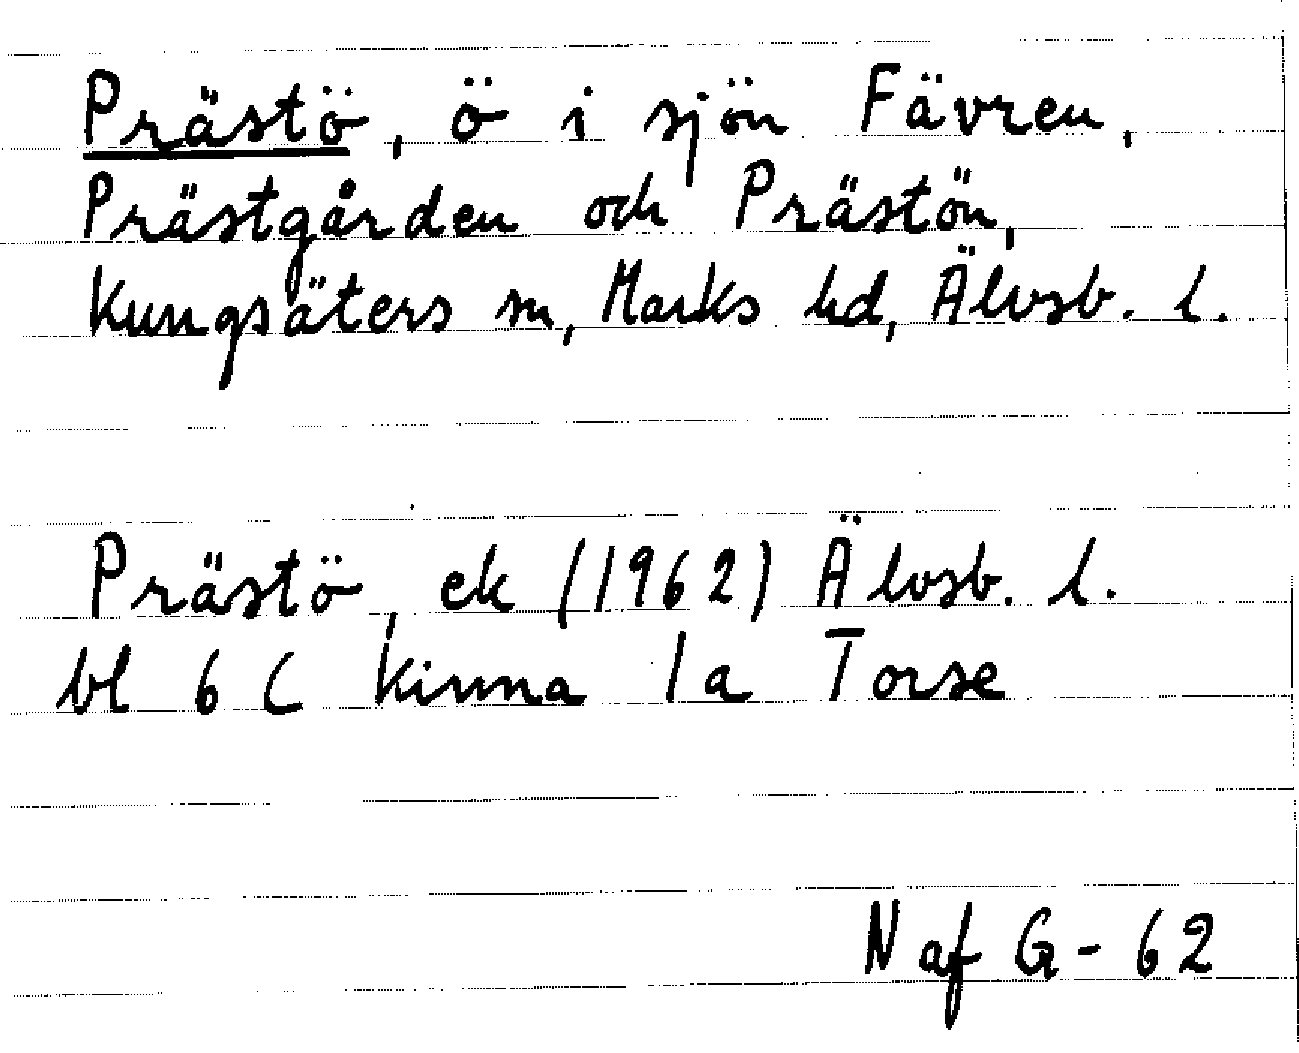 Prästö, ö i sjön Fävren,
Prästgården och Prästön,
Kungsäters sn, Marks hd, Älvsb. l.
Prästö, ek (1962) Älvsb. l.
bl 6 C Kinna 1a Torse
N af G - 62